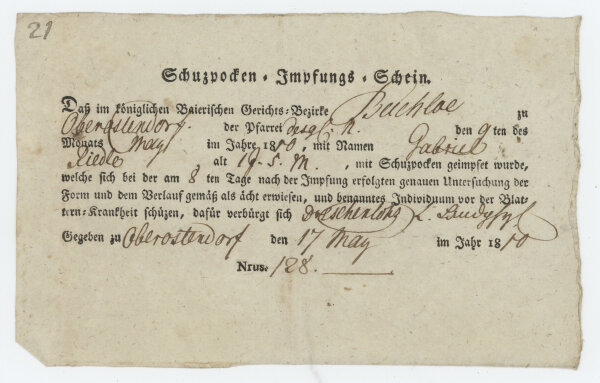 21
Schuzpocken-Impfungs-Schein.
Daß im königlichen Baierischen Gerichts-Bezirke Buchloe zu
Oberostendorf. der Pfarrei desgl. den 9 ten des
Monats May im Jahre 1810, mit Namen Gabriel
Riedle, alt 19. 5. M., mit Schuzpocken geimpfet wurde,
welche sich bei der am 8 ten Tage nach der Impfung erfolgten genauen Untersuchung der
Form und dem Verlauf gemäß als ächt erwiesen, und benanntes Individuum vor der Blat-
tern-Krankheit schüzen, dafür verbürgt sich
Gegeben zu Oberostendorf den 17 May im Jahr 1810
Nrus. 128.